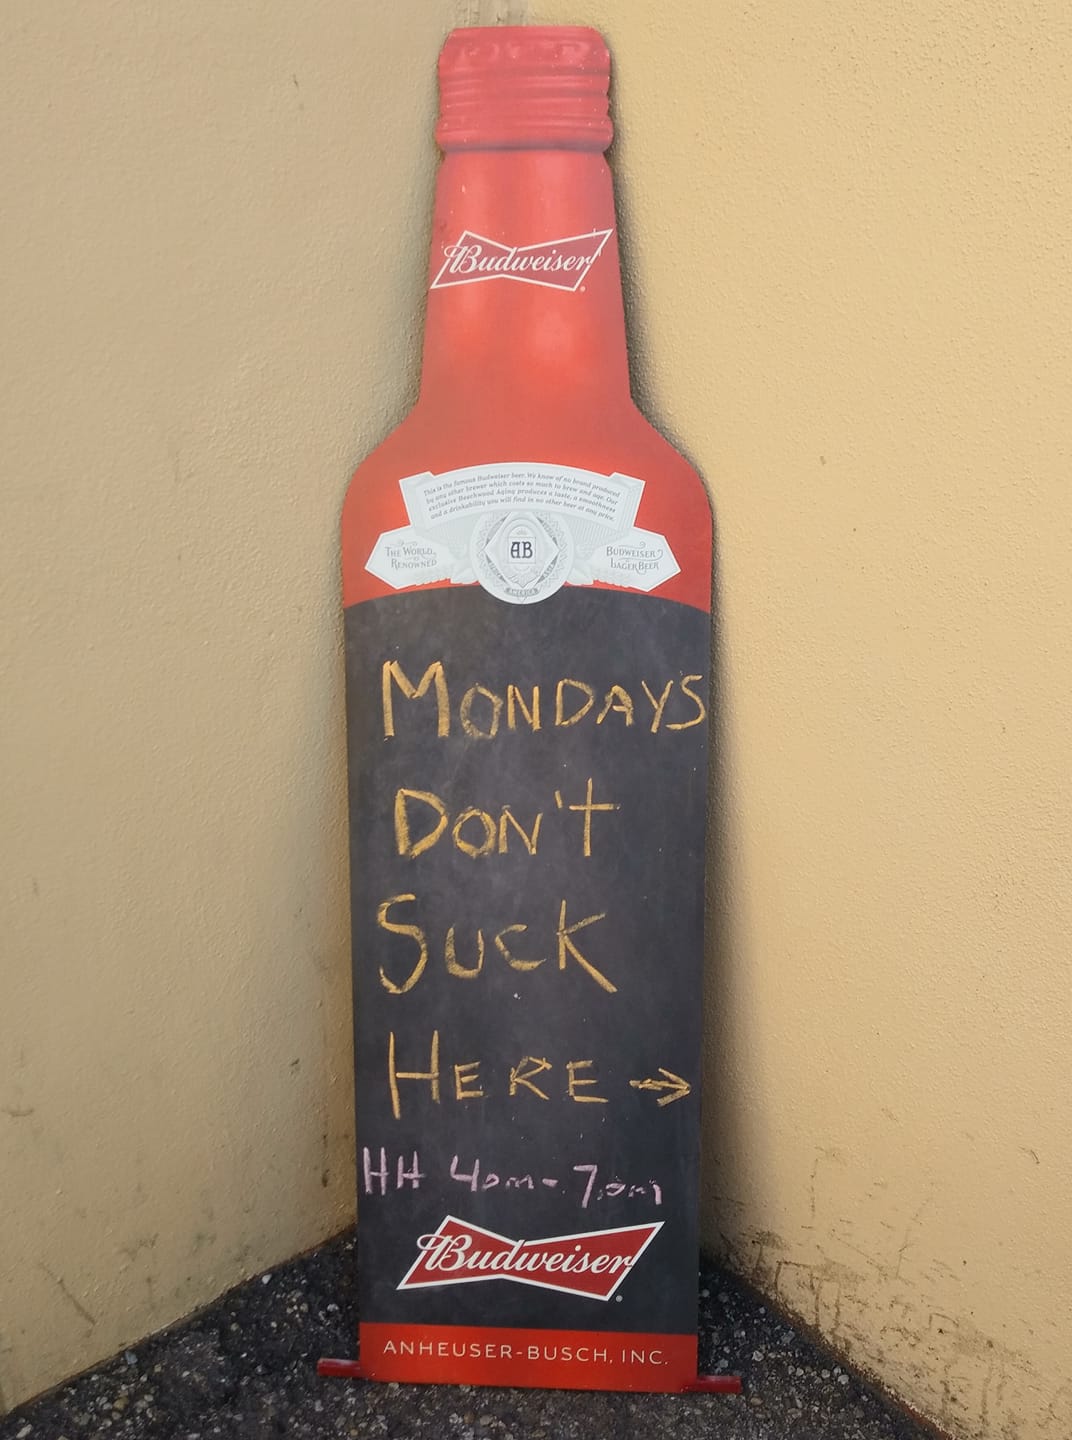 Budweiser
This is the famous Budweiser beer. We know of no brand produced
by any other brewer which costs so much to brew and age. Our
exclusive Beechwood Aging produces a taste, a smoothness
and a drinkability you will find in no other beer at any price.
THE WORLD
RENOWNED
AB
AMERICA
BUDWEISER
LAGER BEER
MONDAYS
DON'T
SUCK
HERE →
HH 4pm - 7pm
Budweiser
ANHEUSER-BUSCH, INC.